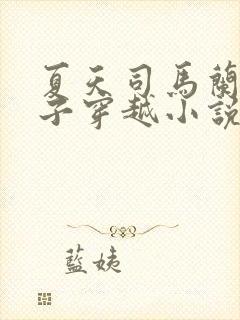 夏天司馬蘭
子穿越小說
藍姨